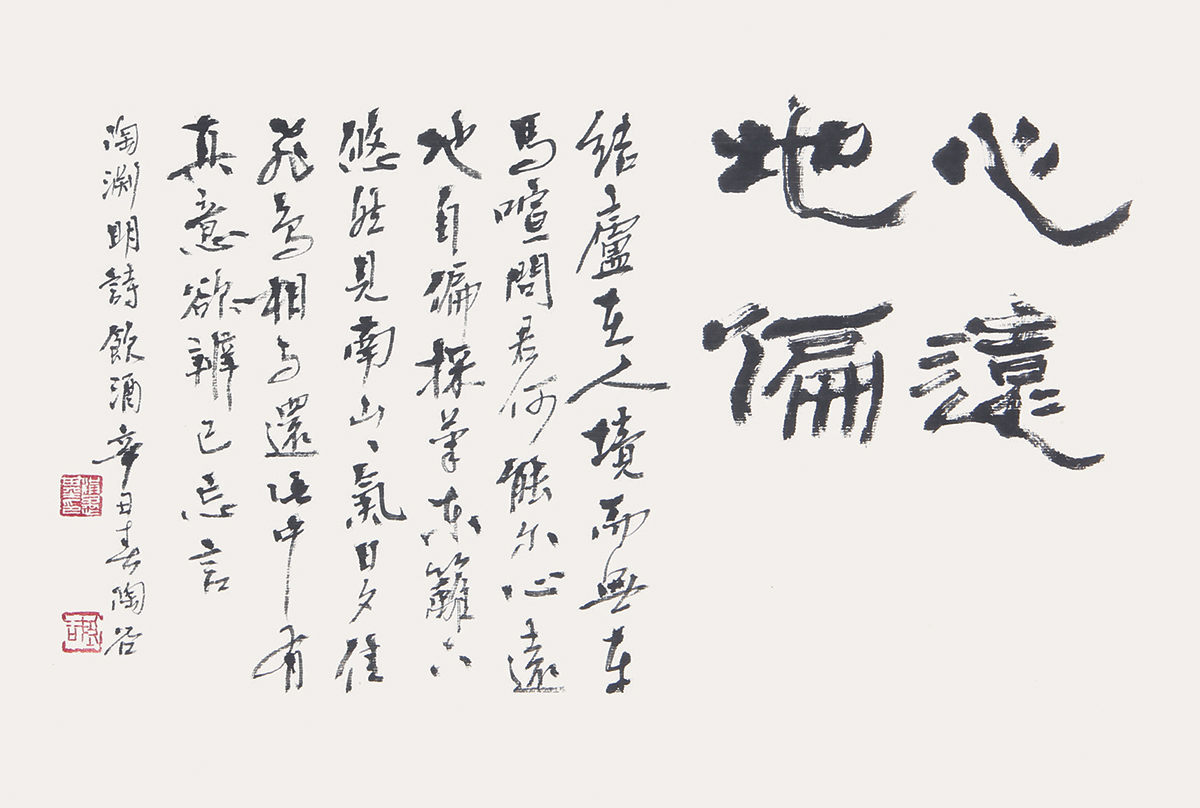 心遠
地偏
結廬在人境而無車
馬喧問君何能尔心遠
地自偏採菊東籬下
悠然見南山、氣日夕佳
飛鳥相与還此中有
真意欲辨已忘言
陶淵明詩飲酒辛丑春陶谷